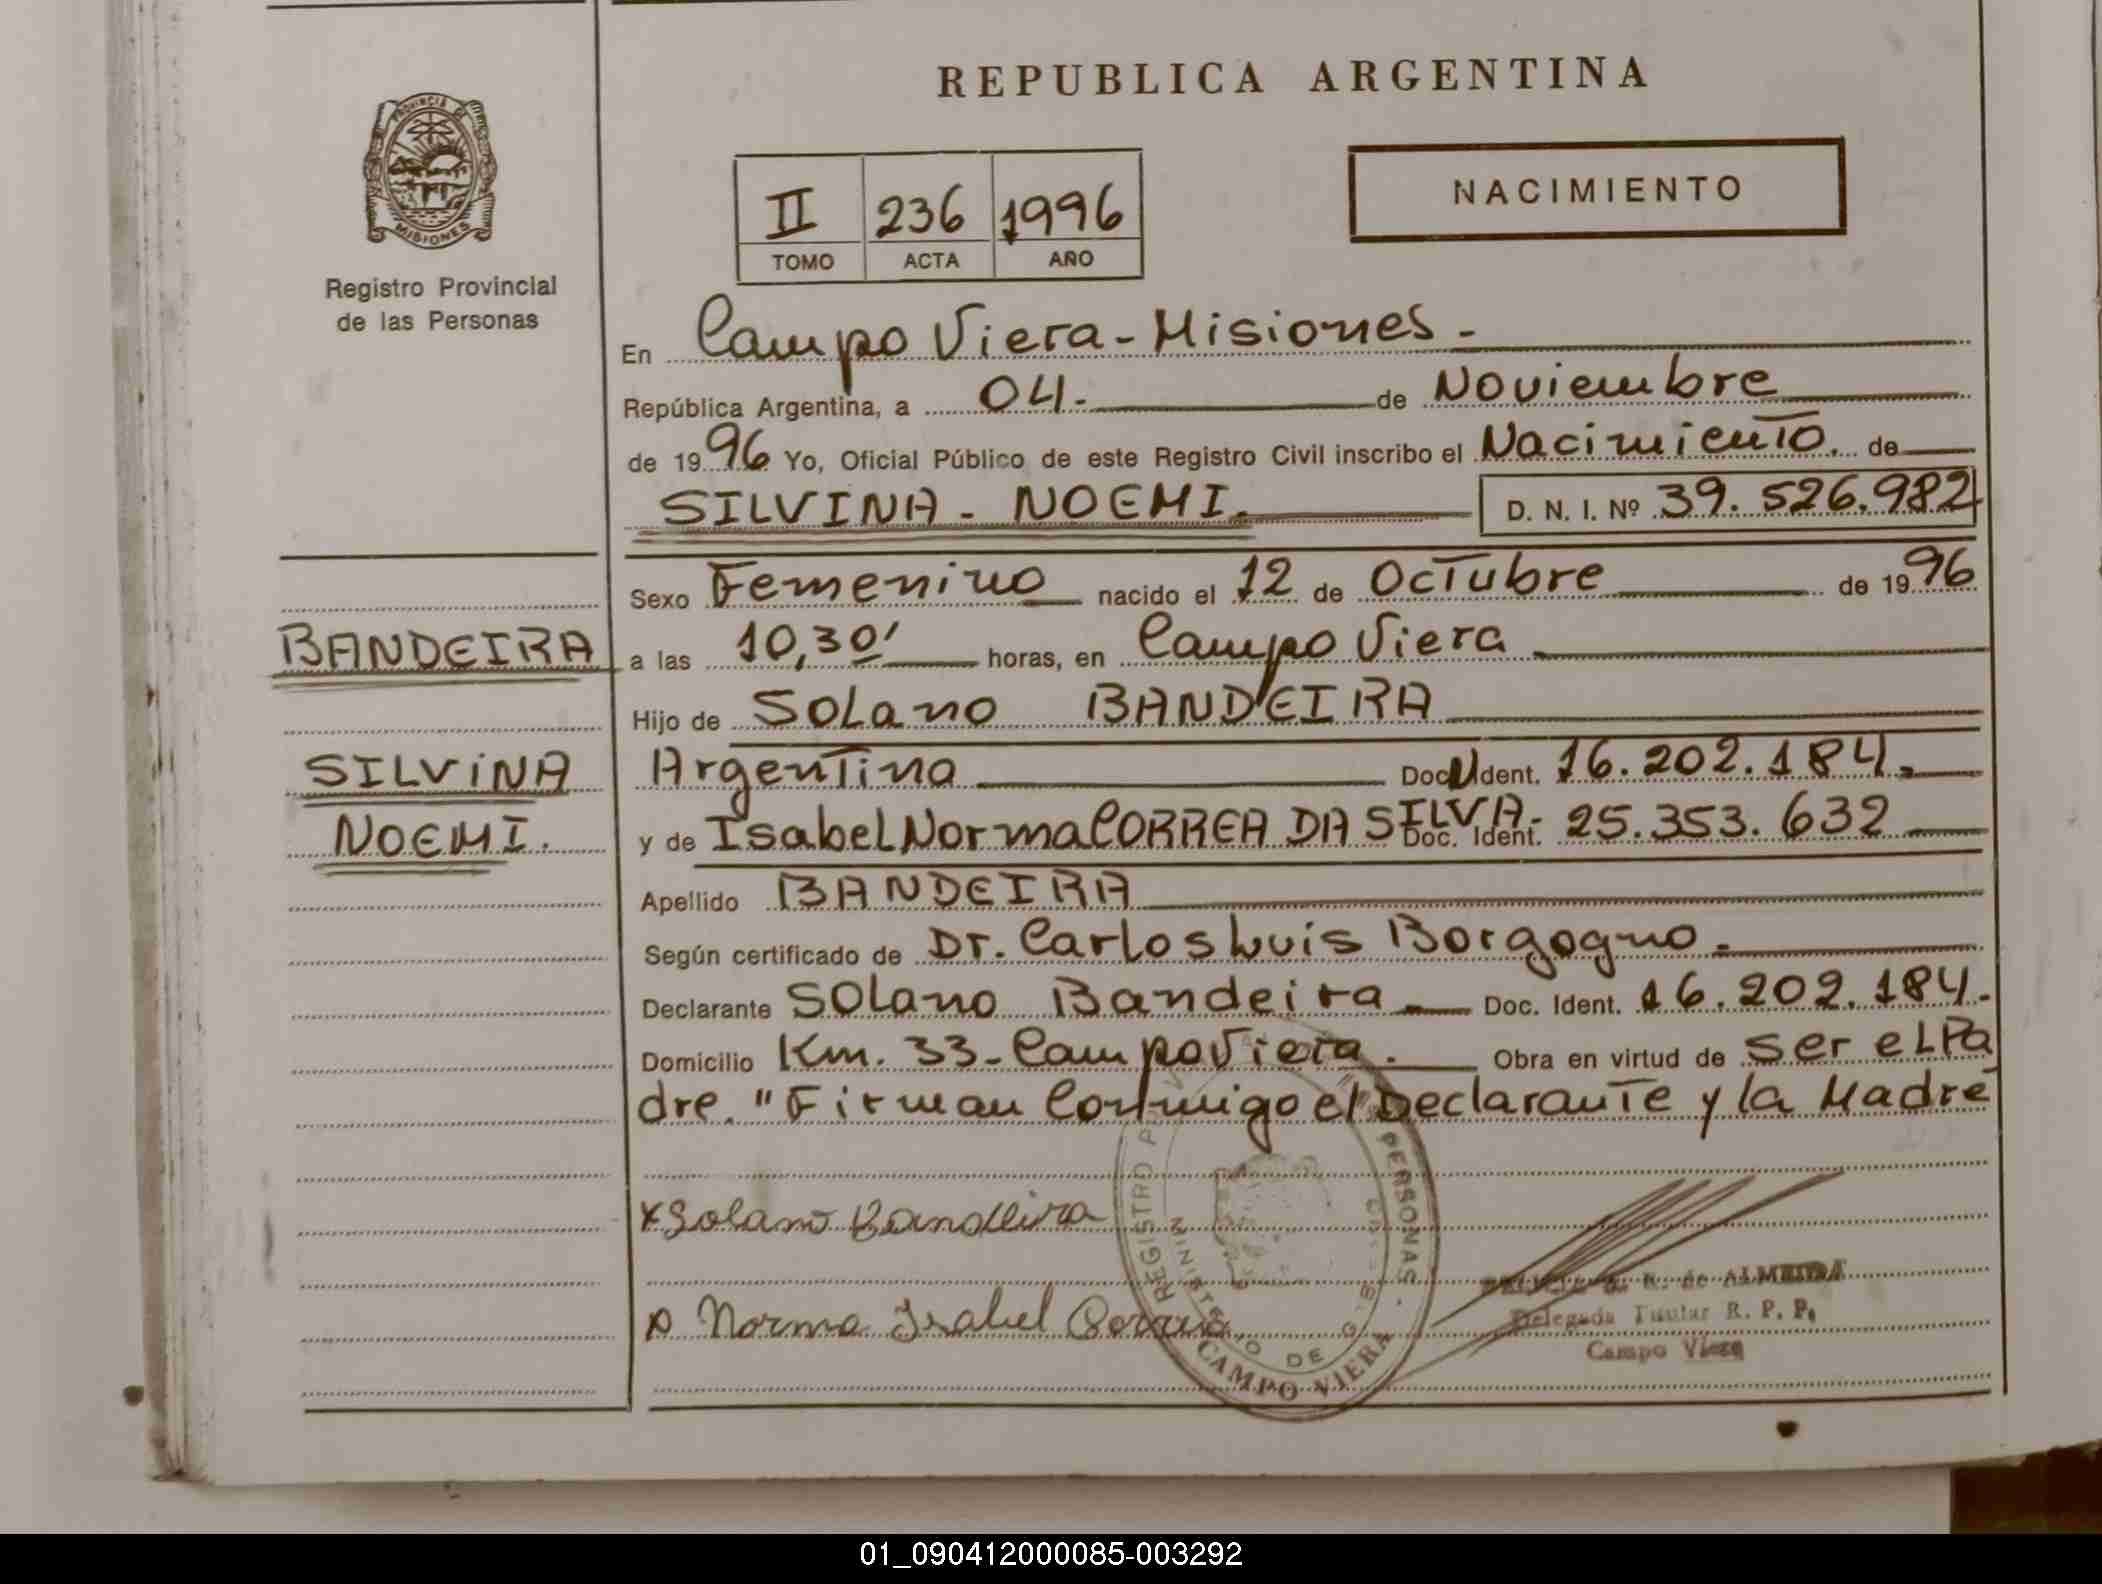 REPUBLICA ARGENTINA
PROVINCIA DE
MISIONES
Registro Provincial
de las Personas
II 236 1996
TOMO ACTA AÑO
NACIMIENTO
En Campo Viera - Misiones -
República Argentina, a 04. de Noviembre
de 1996 Yo, Oficial Público de este Registro Civil inscribo el Nacimiento. de
SILVINA - NOEMI. D. N. I. Nº 39.526.982
Sexo Femenino nacido el 12 de Octubre de 1996
BANDEIRA
a las 10,30' horas, en Campo Viera
Hijo de Solano BANDEIRA
SILVINA
Argentina Doc. Ident. 16.202.184.
NOEMI.
y de Isabel Norma CORREA DA SILVA - Doc. Ident. 25.353.632
Apellido BANDEIRA
Según certificado de Dr. Carlos Luis Borgogno.
Declarante Solano Bandeira Doc. Ident. 16.202.184.
Domicilio Km. 33 - Campo Viera. Obra en virtud de ser el Pa
dre. "Firman Conmigo el Declarante y la Madre
x Solano Bandeira
Norma Isabel Correa
REGISTRO PERSONAS
MINISTERIO DE
CAMPO VIERA
R. de ALMEIDA
Delegada Titular R. P. P.
Campo Viera
01_090412000085-003292